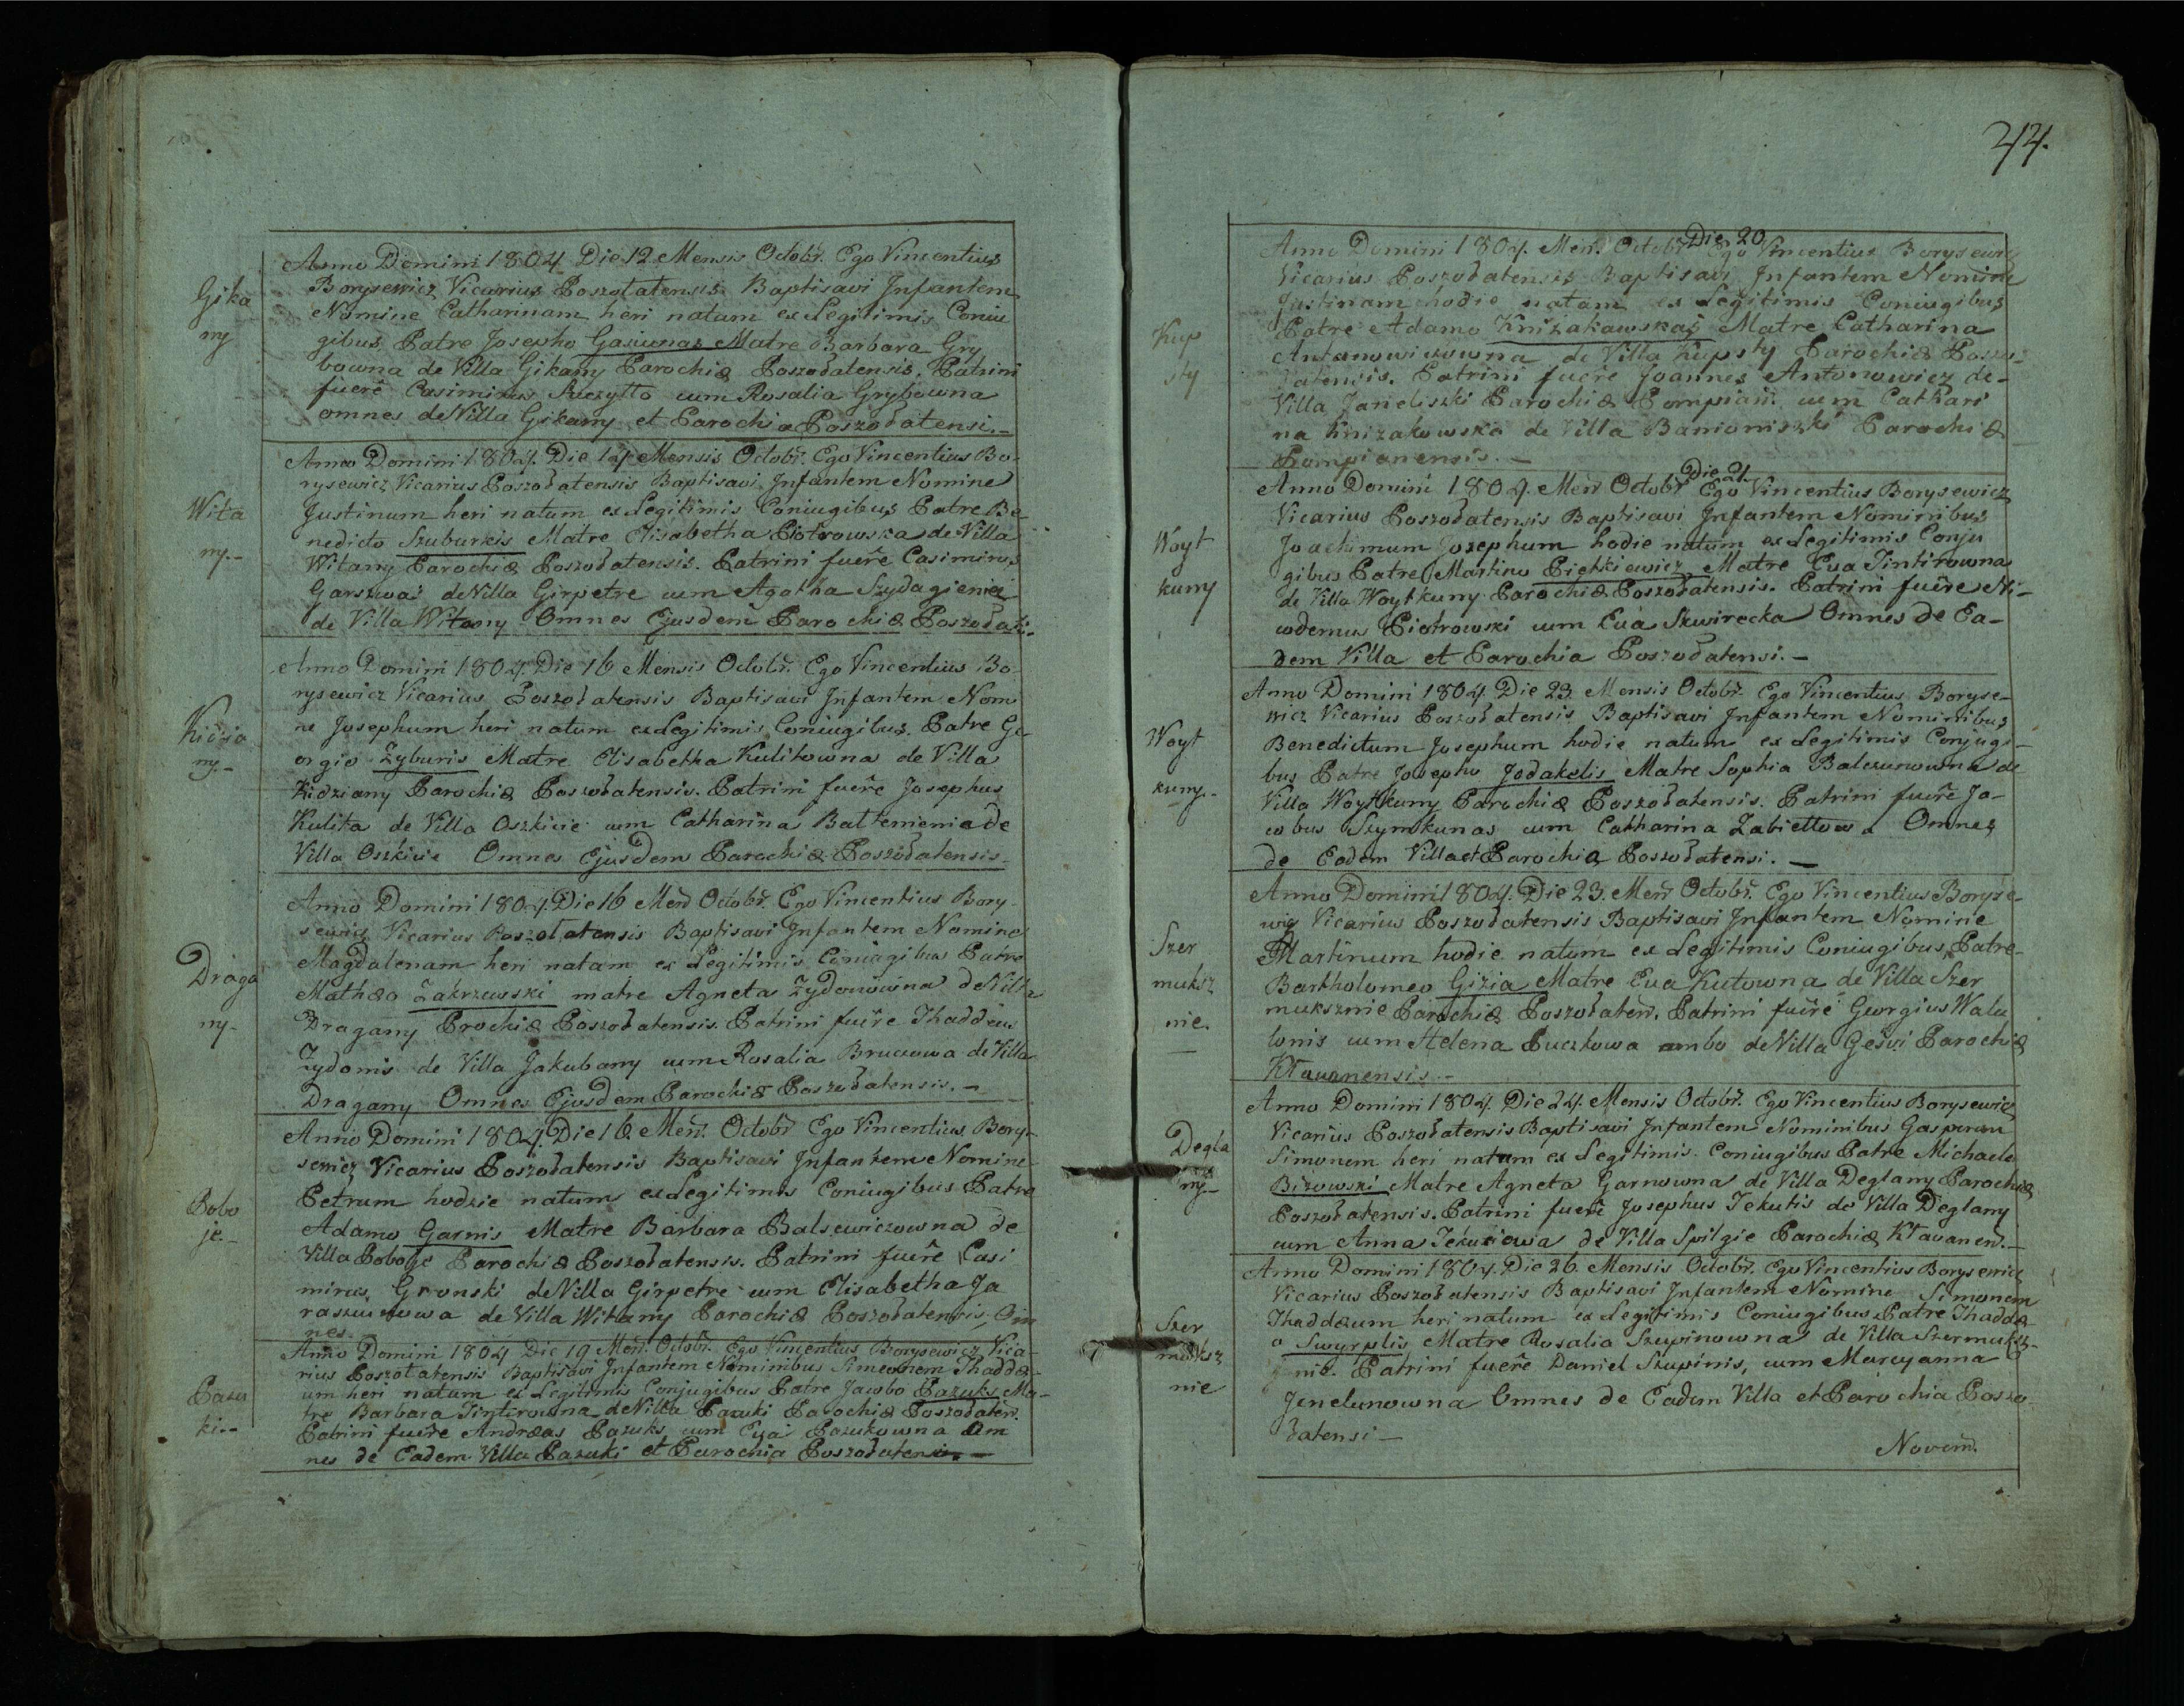 Gika
ny
Anno Domini 1804 Die 12 Mensis Octobr. Ego Vincentius
Borysewicz Vicarius Poszołatensis Baptisavi Infantem
Nomine Catharinam heri natam ex Legitimis Coniu
gibus Patre Josepho Gasiunas Matre Barbara Gry
bowna de Villa Gikany Parochiæ Poszołatensis. Patrini
fuere Casimirus Szczytto cum Rosalia Grybowna
omnes de Villa Gikany et Parochia Poszołatensi.
Wita
ny.
Anno Domini 1804. Die 14 Mensis Octobr. Ego Vincentius Bo-
rysewicz Vicarius Poszołatensis Baptisavi Infantem Nomine
Justinum heri natum ex Legitimis Coniugibus Patre Be
nedicto Szuburkis Matre Elisabetha Piotrowska de Villa
Witany Parochiæ Poszołatensis. Patrini fuere Casimirus
Garszwa de Villa Girpetre cum Agatha Szydagienia
de Villa Witany Omnes Ejusdem Parochiæ Poszołati.
Kidzia
ny.
Anno Domini 1804 Die 16 Mensis Octobr. Ego Vincentius Bo-
rysewicz Vicarius Poszołatensis Baptisavi Infantem Nomi
ne Josephum heri natum ex Legitimis Coniugibus Patre Ge
orgio Zyburis Matre Elisabetha Kulitowna de Villa
Kidziany Parochiæ Poszołatensis. Patrini fuere Josephus
Kulita de Villa Oszkicie cum Catharina Baltenienia de
Villa Oszkicie Omnes Ejusdem Parochiæ Poszołatensis
Draga
ny.
Anno Domini 1804. Die 16 Men Octobr. Ego Vincentius Bory-
sewicz Vicarius Poszołatensis Baptisavi Infantem Nomine
Magdalenam heri natam ex Legitimis Coniugibus Patre
Mathæo Zakrzewski matre Agneta Zydonowna de Villa
Dragany Prochiæ Poszołatensis. Patrini fuere Thaddeus
Zydonis de Villa Jakubany cum Rosalia Brucowa de Villa
Dragany Omnes Ejusdem Parochiæ Poszołatensis.
Bobo
je.
Anno Domini 1804. Die 16 Men. Octobr Ego Vincentius Bory-
sewicz Vicarius Poszołatensis Baptisavi Infantem Nomine
Petrum hodzie natum ex Legitimis Coniugibus Patre
Adamo Garnis Matre Barbara Balsewiczowna de
Villa Boboje Parochiæ Poszołatensis. Patrini fuere Casi
mirus Gronski de Villa Girpetre cum Elisabetha Ja
raszunowa de Villa Witany Parochiæ Poszołatensis, Om
nes.
Pazu
ki.
Anno Domini 1804 Die 19 Men. Octobr. Ego Vincentius Borysewicz Vica-
rius Poszołatensis Baptisavi Infantem Nominibus Simeonem Thaddæ-
um heri natum ex Legitimis Conjugibus Patre Jacobo Pazuks Ma-
tre Barbara Tintirowna de Villa Pazuki Parochiæ Poszołaten.
Patrini fuere Andræas Pazuks cum Eva Pazukowna Om
nes de Eadem Villa Pazuki et Parochia Poszołatensi.
244.
Kup
sty
Anno Domini 1804. Men. Octobr. Die 20 Ego Vincentius Borysewicz
Vicarius Poszołatensis Baptisavi Infantem Nomine
Justinam hodie natam ex Legitimis Coniugibus
Patre Adamo Knizakawskas Matre Catharina
Antonowiczowna de Villa Kupsty Parochiæ Poszo-
łatensis. Patrini fuere Joannes Antonowicz de
Villa Janeliszki Parochiæ Pompian. cum Cathari
na Knizakowska de Villa Banioniszki Parochiæ
Pompianensis.
Woyt
kuny
Anno Domini 1804. Men Octobr Die 21. Ego Vincentius Borysewicz
Vicarius Poszołatensis Baptisavi Infantem Nominibus
Joachimum Josephum hodie natum ex Legitimis Conju
gibus Patre Martino Pietkiewicz Matre Eva Tintirowna
de Villa Woytkuny Parochiæ Poszołatensis. Patrini fuere Ni-
codemus Piotrowski cum Eva Skwirecka Omnes de Ea-
dem Villa et Parochia Poszołatensi.
Woyt
kuny.
Anno Domini 1804. Die 23. Mensis Octobr. Ego Vincentius Boryse-
wicz Vicarius Poszołatensis Baptisavi Infantem Nominibus
Benedictum Josephum hodie natum ex Legitimis Conjugi-
bus Patre Josepho Jodakelis Matre Sophia Balczunowna de
Villa Woytkuny Parochiæ Poszołatensis. Patrini fuere Ja-
cobus Szymkunas cum Catharina Zabiettowa Omnes
de Eadem Villa et Parochia Poszołatensi.
Szer
muksz
nie.
Anno Domini 1804. Die 23. Men Octobr. Ego Vincentius Boryse-
wicz Vicarius Poszołatensis Baptisavi Infantem Nomine
Martinum hodie natum ex Legitimis Coniugibus Patre
Bartholomeo Gizia Matre Eva Kutowna de Villa Szer
muksznie Parochiæ Poszołaten. Patrini fuere Georgius Walu
lonis cum Helena Puczkowa ambo de Villa Geswi Parochiæ
Kławanensis.
Degla
ny.
Anno Domini 1804. Die 24. Mensis Octobr. Ego Vincentius Borysewicz
Vicarius Poszołatensis Baptisavi Infantem Nominibus Gasperum
Simonem heri natum ex Legitimis Coniugibus Patre Michaele
Bizowski Matre Agneta Garnowna de Villa Deglany Parochiæ
Poszołatensis. Patrini fuere Josephus Jekutis de Villa Deglany
cum Anna Jekuciowa de Villa Spilgie Parochiæ Kławanen.
Szer
muksz
nie
Anno Domini 1804. Die 26. Mensis Octobr. Ego Vincentius Borysewicz
Vicarius Poszołatensis Baptisavi Infantem Nomine Simonem
Thaddæum heri natum ex Legitimis Coniugibus Patre Thaddæ
o Swyrplis Matre Rosalia Szupinowna de Villa Szermuksz-
nie. Patrini fuere Daniel Szupinis, cum Maryanna
Jenelunowna Omnes de Eadem Villa et Parochia Poszo
łatensi
Novem.